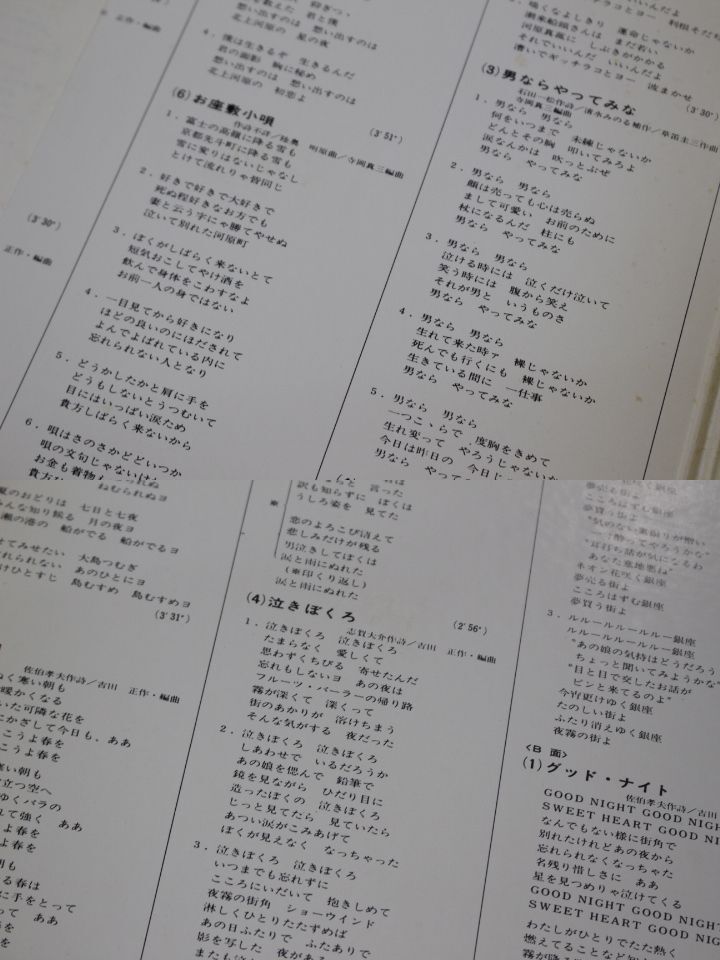 正作・編曲
(3′30″)
正作・編曲
想い出すのは 想い出すのは
北上河原の 星の夜
4．僕は生きるぞ 生きるんだ
君の面影 胸に秘め
想い出すのは 想い出すのは
北上河原の 初恋よ
(6)お座敷小唄
(3′51″)
作詩不詳／陸奥 明原曲／寺岡真三編曲
1．富士の高嶺に降る雪も
京都先斗町に降る雪も
雪に変りはないじゃなし
とけて流れりゃ皆同じ
2．好きで好きで大好きで
死ぬ程好きなお方でも
妻と云う字にゃ勝てやせぬ
泣いて別れた河原町
3．ぼくがしばらく来ないとて
短気おこしてやけ酒を
飲んで身体をこわすなよ
お前一人の身ではない
4．一目見てから好きになり
ほどの良いのにほだされて
よんでよばれている内に
忘れられない人となり
5．どうかしたかと肩に手を
どうもしないとうつむいて
目にはいっぱい涙ため
貴方しばらく来ないから
6．唄はさのさかどどいつか
唄の文句じゃないけれ
お金も着物も
潮来船頭さんは まだ若い
河原真菰に しぶきがかかる
それでいいんだ いいんだよ
漕いでギッチラコとヨー 波まかせ
(3)男ならやってみな
(3′30″)
石田一松作詩／清水みのる補作／草笛圭三作曲
寺岡真三編曲
1．男なら 男なら
何をいつまで 未練じゃないか
どんとその胸 叩いてみろよ
涙なんかは 吹っとぶぜ
男なら やってみな
2．男なら 男なら
顔は売っても心は売らぬ
まして可愛い お前のために
杖になるんだ 柱にも
男なら やってみな
3．男なら 男なら
泣ける時には 泣くだけ泣いて
笑う時には 腹から笑え
それが男と いうものさ
男なら やってみな
4．男なら 男なら
生れて来た時ァ 裸じゃないか
死んでも行くにも 裸じゃないか
生きている間に 一仕事
男なら やってみな
5．男なら 男なら
一つこゝらで 度胸をきめて
生れ変って やろうじゃないか
今日は昨日の 今日じ
男なら やって
ねむられぬヨ
夏のおどりは 七日と七夜
みんな知り候る 月の夜ヨ
瀬の港の 船がでる 船がでるヨ
せてみせたい 大島つむぎ
れられない あのひとにヨ
けひとすじ 島むすめ 島むすめヨ
(3′31″)
佐伯孝夫作詩／吉田 正作・編曲
ぬく寒い朝も
暖かくなる
いた可憐な花を
にかざして今日も、ああ
こうよ春を
こうよ春を
寒い朝も
立つ空へ
ゆくバラの
れて強く ああ
うよ春を
うよ春を
朝も
る春は
に手をとって
って ああ
を
訳も知らずに ぼくは
うしろ姿を 見てた
恋のよろこび消えて
悲しみだけが残る
男泣きしてぼくは
涙と雨にぬれた
(※印くり返し)
涙と雨にぬれた
(4)泣きぼくろ
(2′56″)
志賀大介作詩／吉田 正作・編曲
1．泣きぼくろ 泣きぼくろ
たまらなく 愛しくて
思わずくちびる 寄せたんだ
忘れもしないヨ あの夜は
フルーツ・パーラーの帰り路
霧が深くて 深くって
街のあかりが 溶けちまう
そんな気がする 夜だった
2．泣きぼくろ 泣きぼくろ
しあわせで いるだろうか
あの娘を偲んで 鉛筆で
鏡を見ながら ひだり目に
造ったぼくの 泣きぼくろ
じっと見てたら 見ていたら
あつい涙がこみあげて
ぼくが見えなく なっちゃった
3．泣きぼくろ 泣きぼくろ
いつまでも忘れずに
こころにいだいて 抱きしめて
夜霧の街角 ショーウインド
淋しくひとりたたずめば
あの日ふたりで ふたありで
影を写した 夜が
夢売る街よ
こころはずむ銀座
夢買う街よ
あなた意地悪ね”
ネオン花咲く銀座
夢売る街よ
こころはずむ銀座
夢買う街よ
3．ルルールルールルー銀座
ルルールルールルー銀座
“あの娘の気持はどうだろう
ちょっと聞いてみようかな”
“目と目で交したお話が
ピンと来てるのよ”
今宵更けゆく銀座
たのしい街よ
ふたり消えゆく銀座
夜霧の街よ
〈B 面〉
(1)グッド・ナイト
佐伯孝夫作詩／吉田
GOOD NIGHT GOOD NIGHT
SWEET HEART GOOD NI
なんでもない様に街角で
別れたけれどあの夜から
忘れられなくなっちゃた
名残り惜しさに ああ
星を見つめりゃ泣けてくる
GOOD NIGHT GOOD NIGHT
SWEET HEART GOOD NI
わたしがひとりでたた熱く
燃えてることなど